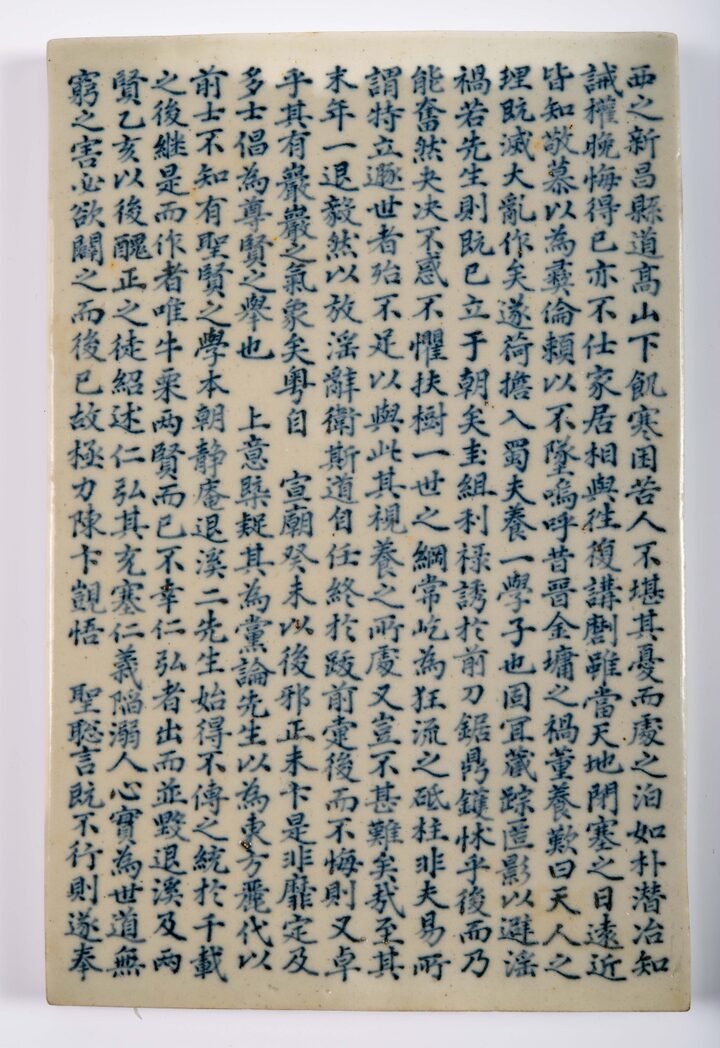 西之新昌縣道高山下飢寒困苦人不堪其憂而處之泊如朴潛冶知
誡權晚悔得已亦不仕家居相與往復講劘雖當天地閉塞之日遠近
皆知敬慕以為彛倫賴以不墜嗚呼昔晉金墉之禍董養歎曰天人之
理既滅大亂作矣遂荷擔入蜀夫養一學子也固宜藏踪匿影以避滛
禍若先生則既已立于朝矣圭組利祿誘於前刀鋸鼎鑊怵乎後而乃
能奮然夬決不感不懼扶樹一世之綱常屹為狂流之砥柱非夫易所
謂特立遯世者殆不足以與此其視養之所處又豈不甚難矣㢤至其
末年一退毅然以放滛辭衛斯道自任終於跋前疐後而不悔則又卓
乎其有巖巖之氣象矣粤自 宣廟癸未以後邪正未卞是非靡定及
多士倡為尊賢之舉也 上意槩疑其為黨論先生以為東方麗代以
前士不知有聖賢之學本朝靜庵退溪二先生始得不傳之統於千載
之後継是而作者唯牛栗兩賢而已不幸仁弘者出而並毀退溪及兩
賢乙亥以後醜正之徒紹述仁弘其充塞仁義陷溺人心實為世道無
窮之害必欲闢之而後已故極力陳卞覬悟 聖聡言既不行則遂奉